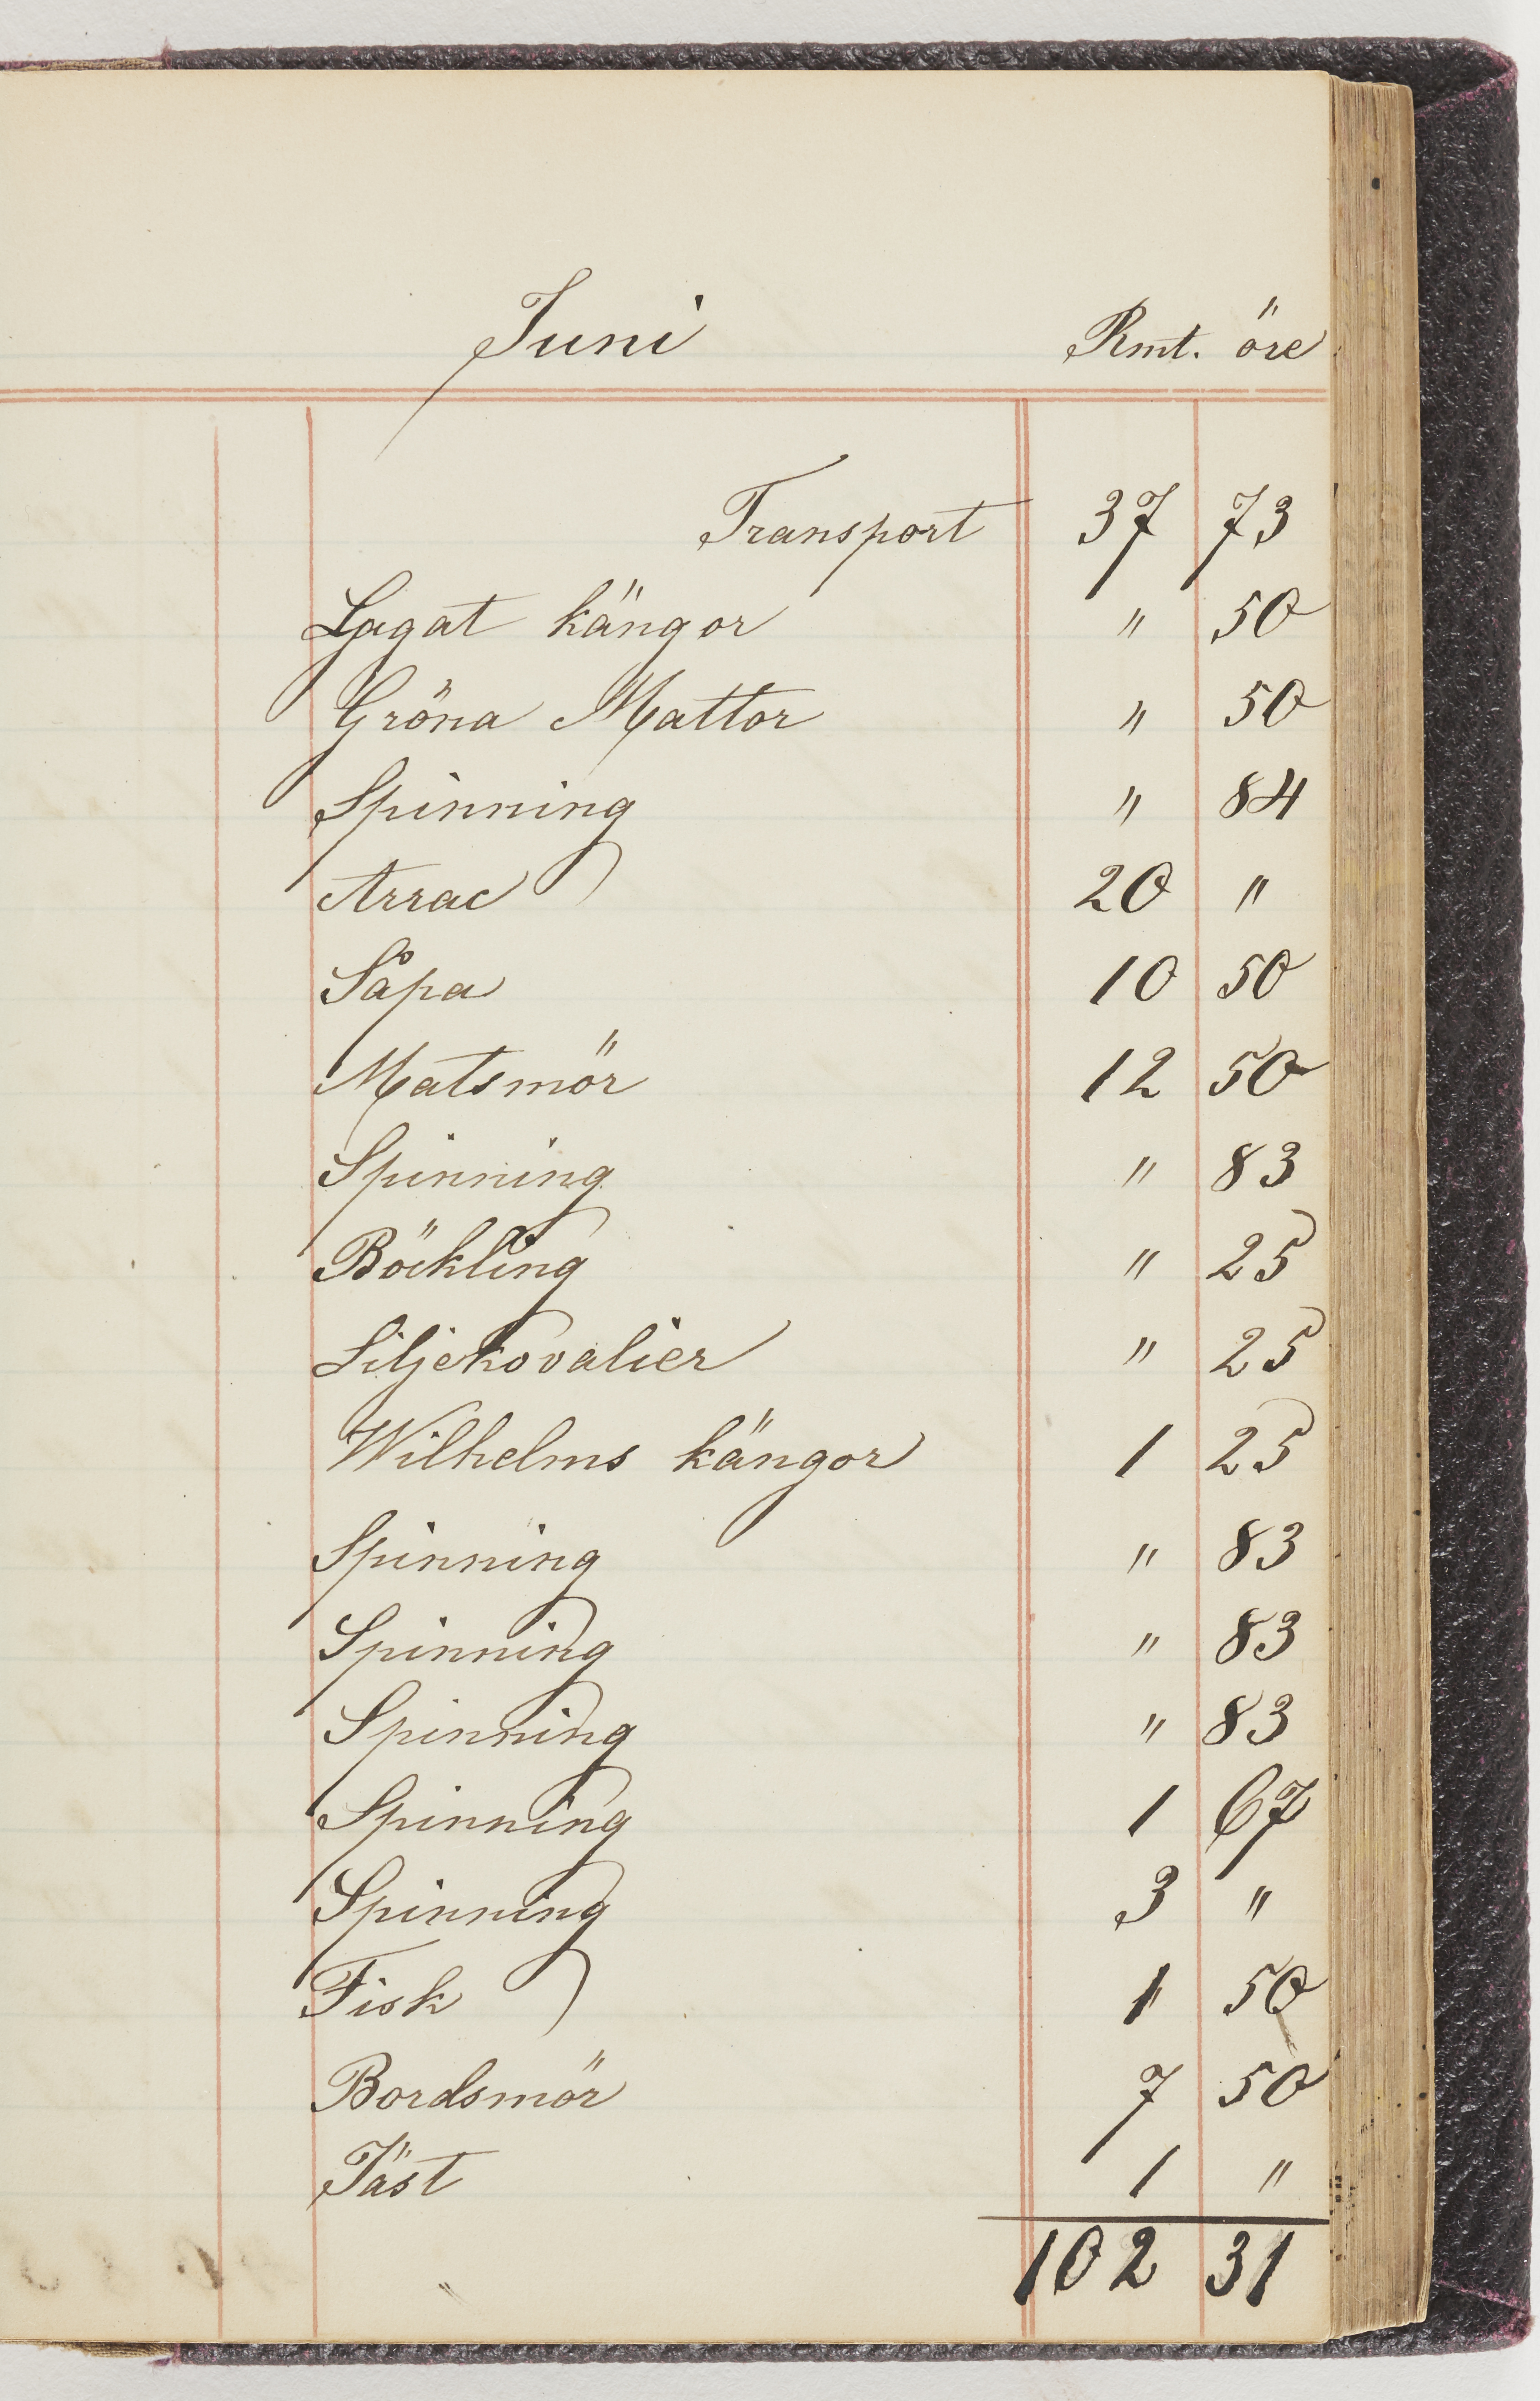 Juni Rmt. öre
Transport 37 73
Lagat kängor " 50
Gröna Mattor " 50
Spinning " 84
Arrac 20 "
Såpa 10 50
Matsmör 12 50
Spinning " 83
Böckling " 25
Liljekovalier " 25
Wilhelms kängor 1 25
Spinning " 83
Spinning " 83
Spinning " 83
Spinning 1 67
Spinning 3 "
Fisk 1 50
Bordsmör 7 50
Jäst 1 "
102 31